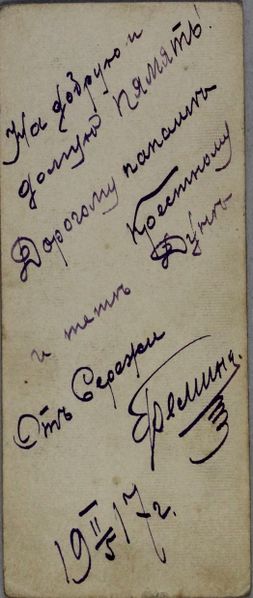 На добрую и
долгую память!
Дорогому папашѣ
Крестному
и тетѣ Дунѣ
Отъ Сережи
Ереминъ.
19 II/5 17 г.